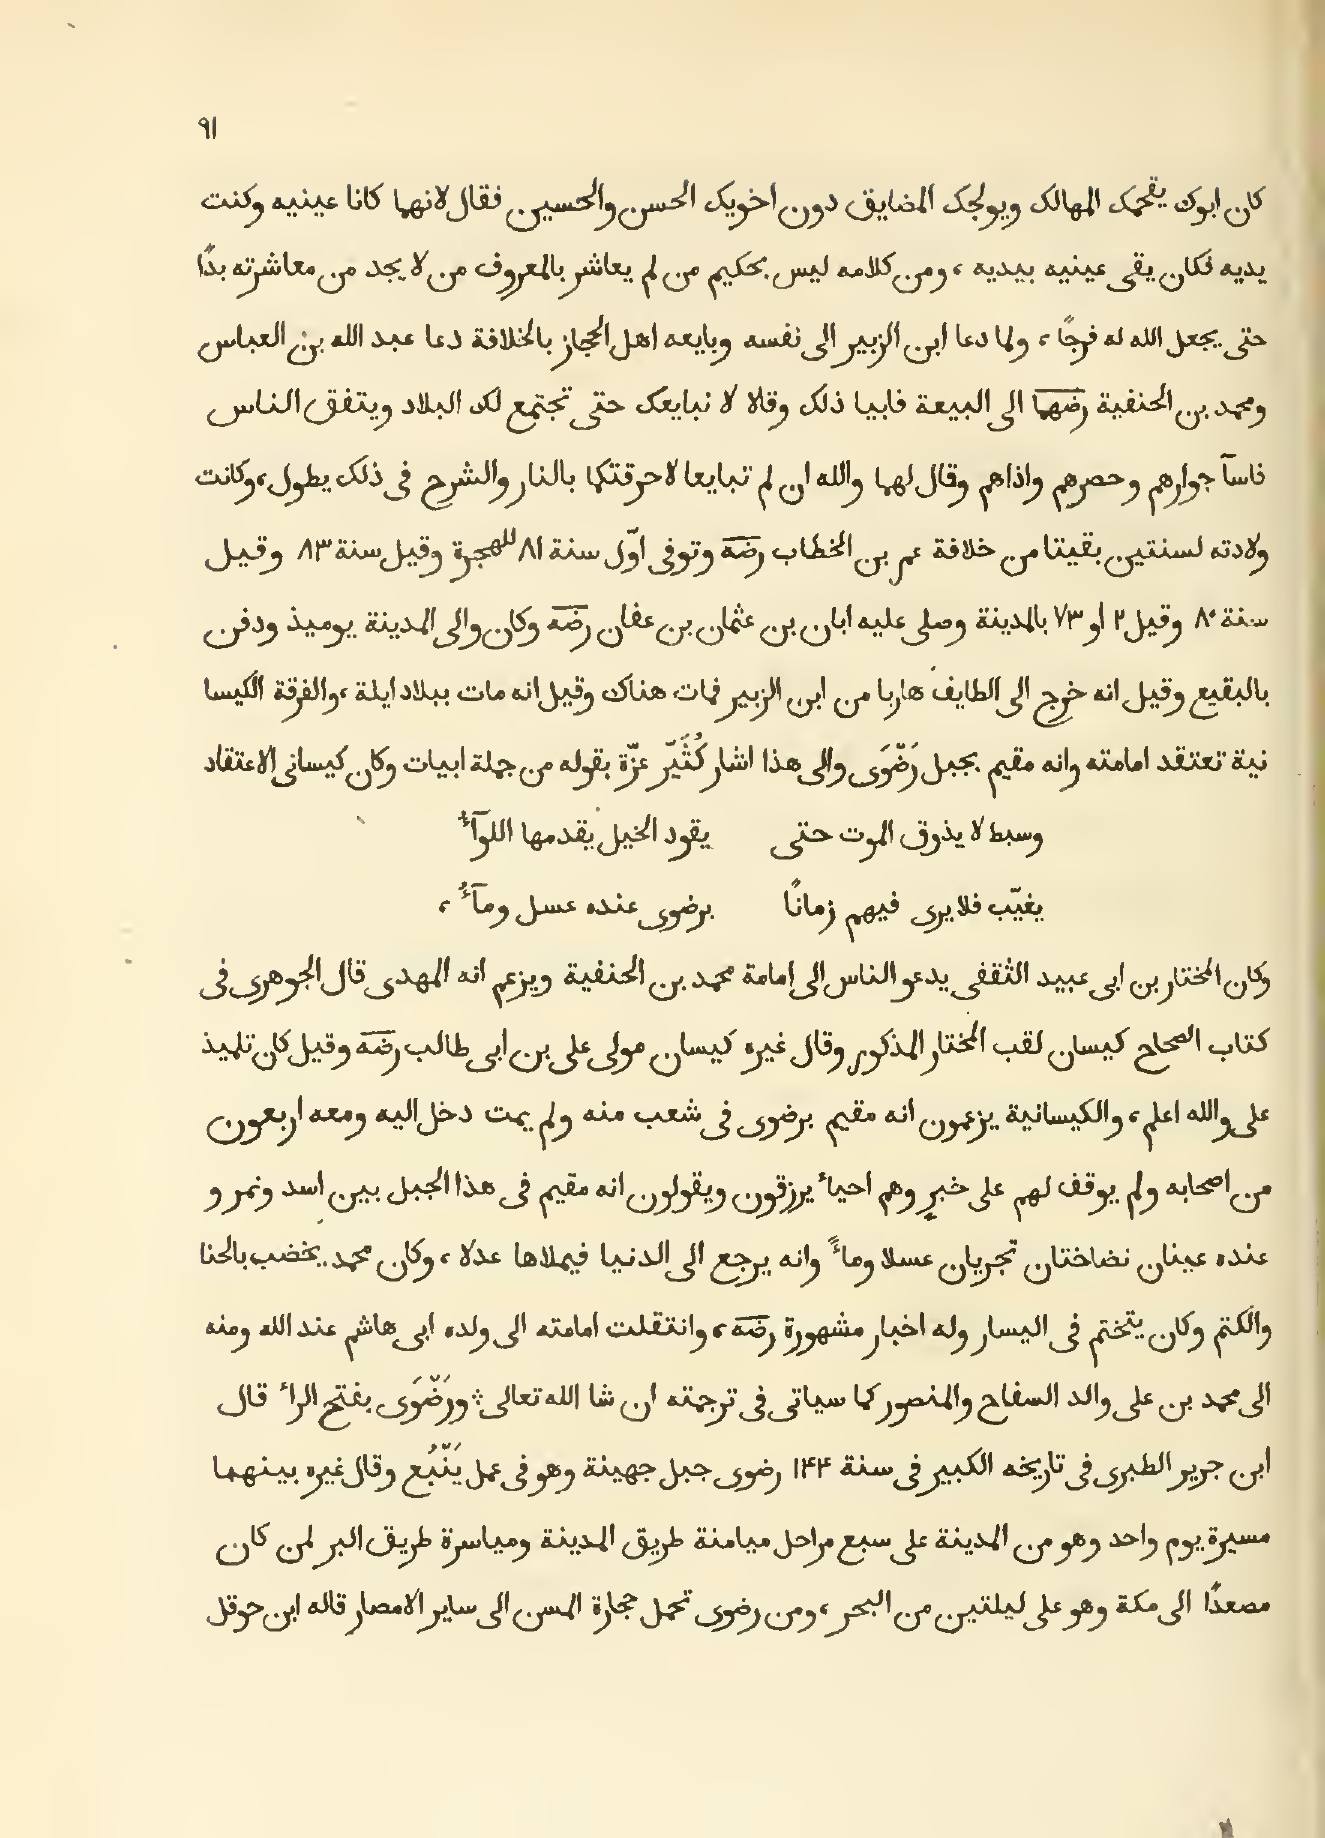 ٩١
كان ابوك يقحمك المهالك ويولجك المضايق دون اخويك الحسن والحسين فقال لانهما كانا عينيه وكنت
يديه فكان يقى عينيه بيديه ، ومن كلامه ليس بحكيم من لم يعاشر بالمعروف من لا يجد من معاشرته بدًّا
حتى يجعل الله له فرجًا ، ولما دعا ابن الزبير الى نفسه وبايعه اهل الحجاز بالخلافة دعا عبد الله بن العباس
ومحمد بن الحنفية رضهما الى البيعة فابيا ذلك وقالا لا نبايعك حتى تجتمع لك البلاد ويتفق الناس
فاسآ جوارهم وحصرهم واذاهم وقال لهما والله ان لم تبايعا لاحرقتكما بالنار والشرح فى ذلك يطول ، وكانت
ولادته لسنتين بقيتا من خلافة عمر بن الخطاب رضه وتوفى اوّل سنة ٨١ للهجرة وقيل سنة ٨٣ وقيل
سنة ٨٠ وقيل ٢ او ٧٣ بالمدينة وصلى عليه ابان بن عثمان بن عفان رضه وكان والى المدينة يوميذ ودفن
بالبقيع وقيل انه خرج الى الطايف هاربا من ابن الزبير فمات هناك وقيل انه مات ببلاد ايلة ، والفرقة الكيسا
نية تعتقد امامته وانه مقيم بجبل رَضْوَى والى هذا اشار كُثَيّر عزّة بقوله من جملة ابيات وكان كيسانى الاعتقاد
وسبط لا يذوق الموت حتى يقود الخيل يقدمها اللوآءُ
يغيّب فلا يرى فيهم زمانًا برضوى عنده عسل ومآءُ ،
وكان المختار بن ابى عبيد الثقفى يدعو الناس الى امامة محمد بن الحنفية ويزعم انه المهدى قال الجوهرى فى
كتاب الصحاح كيسان لقب المختار المذكور وقال غيره كيسان مولى على بن ابى طالب رضه وقيل كان تلميذ
على والله اعلم ، والكيسانية يزعمون انه مقيم برضوى فى شعب منه ولم يمت دخل اليه ومعه اربعون
من اصحابه ولم يوقف لهم على خبرٍ وهم احياء يرزقون ويقولون انه مقيم فى هذا الجبل بين اسد ونمر و
عنده عينان نضاختان تجريان عسلا وماءً وانه يرجع الى الدنيا فيملاها عدلا ، وكان محمد يخضب بالحنا
والكتم وكان يتختم فى اليسار وله اخبار مشهورة رضه ، وانتقلت امامته الى ولده ابى هاشم عند الله ومنه
الى محمد بن على والد السفاح والمنصور كما سياتى فى ترجمته ان شا الله تعالى ؞ ورَضْوَى بفتح الراء قال
ابن جرير الطبرى فى تاريخه الكبير فى سنة ١٤٤ رضوى جبل جهينة وهو فى عمل يَنْبُع وقال غيره بينهما
مسيرة يوم واحد وهو من المدينة على سبع مراحل ميامنة طريق المدينة ومياسرة طريق البر لمن كان
مصعدًا الى مكة وهو على ليلتين من البحر ، ومن رضوى تحمل حجارة المسن الى ساير الامصار قاله ابن حوقل